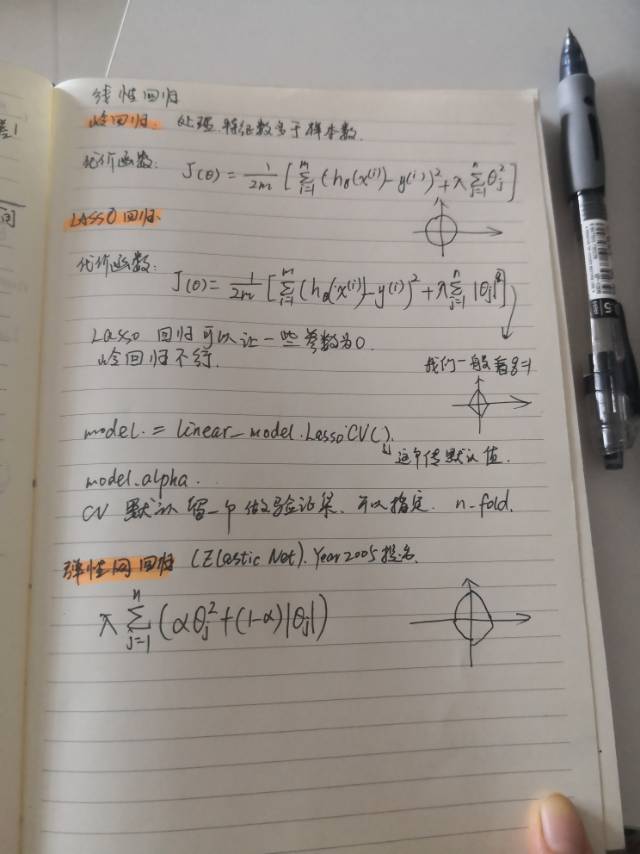 线性回归
岭回归: 处理 特征数多于样本数.
代价函数: J(θ) = 1/2m [ Σ_{i=1}^{m} (h_θ(x^{(i)}) - y^{(i)})^2 + λ Σ_{j=1}^{n} θ_j^2 ]
LASSO回归.
代价函数:
J(θ) = 1/2m [ Σ_{i=1}^{m} (h_θ(x^{(i)}) - y^{(i)})^2 + λ Σ_{j=1}^{n} |θ_j|^q ]
Lasso 回归可以让一些参数为0.
岭回归不行.
我们一般看q=1
model. = linear_model.LassoCV().
这个传默认值.
model.alpha.
CV 默认 留一个做验证集. 可以指定. n-fold.
弹性网回归 (Elastic Net). Year 2005提出.
λ Σ_{j=1}^{n} (αθ_j^2 + (1-α)|θ_j|)